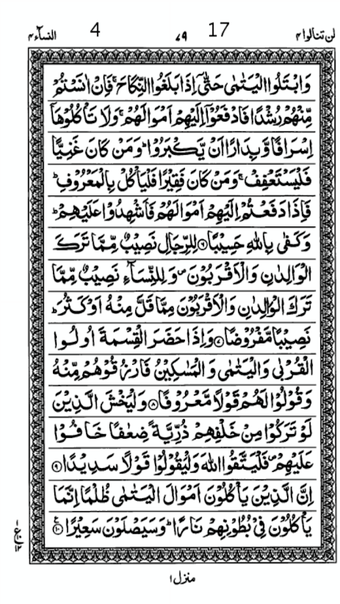 النسآء ٤ 4 ٧٩ 17 لن تنالوا ٤
وَابْتَلُوا الْيَتٰمٰى حَتّٰٓى اِذَا بَلَغُوا النِّكَاحَ ۚ فَاِنْ اٰنَسْتُمْ
مِّنْهُمْ رُشْدًا فَادْفَعُوْٓا اِلَيْهِمْ اَمْوَالَهُمْ ۚ وَلَا تَاْكُلُوْهَآ
اِسْرَافًا وَّبِدَارًا اَنْ يَّكْبَرُوْا ؕ وَمَنْ كَانَ غَنِيًّا
فَلْيَسْتَعْفِفْ ۚ وَمَنْ كَانَ فَقِيْرًا فَلْيَاْكُلْ بِالْمَعْرُوْفِ ؕ
فَاِذَا دَفَعْتُمْ اِلَيْهِمْ اَمْوَالَهُمْ فَاَشْهِدُوْا عَلَيْهِمْ ؕ
وَكَفٰى بِاللّٰهِ حَسِيْبًا ۝٦ لِلرِّجَالِ نَصِيْبٌ مِّمَّا تَرَكَ
الْوَالِدٰنِ وَالْاَقْرَبُوْنَ ۪ وَلِلنِّسَآءِ نَصِيْبٌ مِّمَّا
تَرَكَ الْوَالِدٰنِ وَالْاَقْرَبُوْنَ مِمَّا قَلَّ مِنْهُ اَوْ كَثُرَ ؕ
نَصِيْبًا مَّفْرُوْضًا ۝٧ وَاِذَا حَضَرَ الْقِسْمَةَ اُولُوا
الْقُرْبٰى وَالْيَتٰمٰى وَالْمَسٰكِيْنُ فَارْزُقُوْهُمْ مِّنْهُ
وَقُوْلُوْا لَهُمْ قَوْلًا مَّعْرُوْفًا ۝٨ وَلْيَخْشَ الَّذِيْنَ
لَوْ تَرَكُوْا مِنْ خَلْفِهِمْ ذُرِّيَّةً ضِعٰفًا خَافُوْا
عَلَيْهِمْ ۪ فَلْيَتَّقُوا اللّٰهَ وَلْيَقُوْلُوْا قَوْلًا سَدِيْدًا ۝٩
اِنَّ الَّذِيْنَ يَاْكُلُوْنَ اَمْوَالَ الْيَتٰمٰى ظُلْمًا اِنَّمَا
يَاْكُلُوْنَ فِيْ بُطُوْنِهِمْ نَارًا ؕ وَسَيَصْلَوْنَ سَعِيْرًا ۝١٠
منزل ١